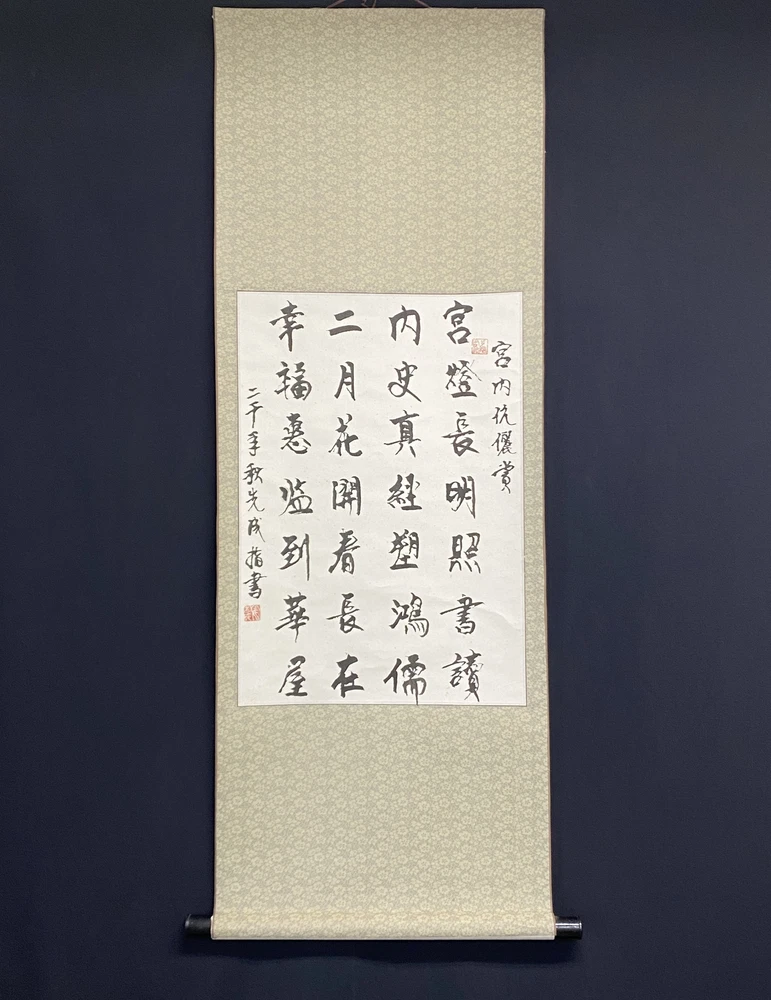 宮内伉儷賞
宮燈長明照書讀
内史真經塑鴻儒
二月花開看長在
幸福惠临到華屋
二千年秋先成指書